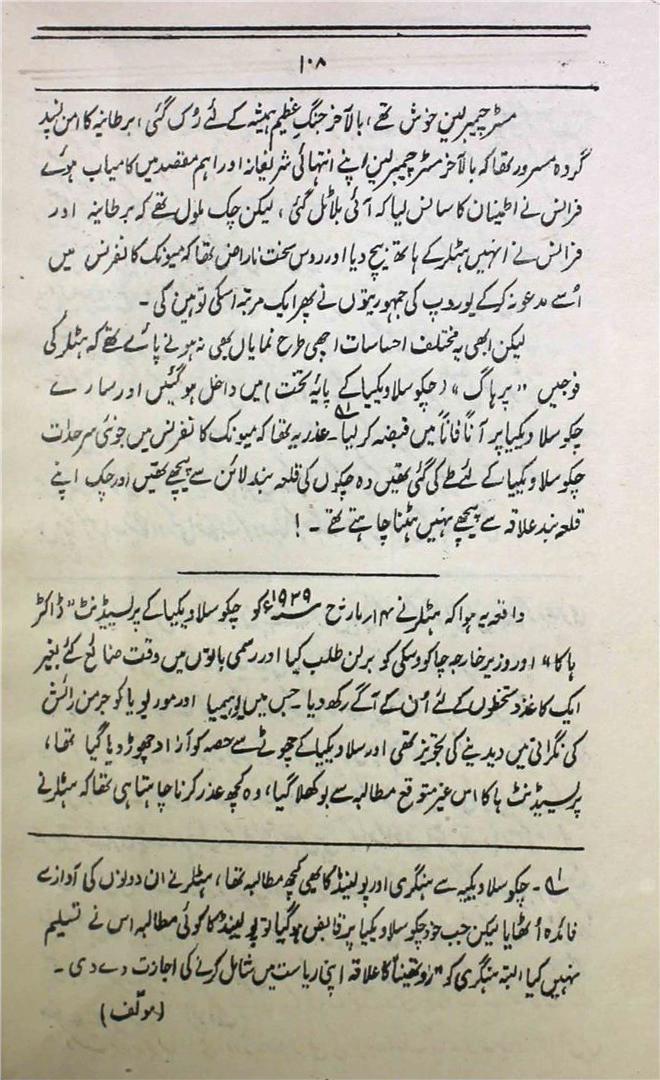 ۱۰۸
مسٹر چیمبرلین خوش تھے، بالآخر جنگِ عظیم ہمیشہ کے لئے رُک گئی، برطانیہ کا امن پسند
گروہ مسرور تھا کہ بالآخر مسٹر چیمبرلین اپنے انتہائی شریفانہ اور اہم مقصد میں کامیاب ہوئے
فرانس نے اطمینان کا سانس لیا کہ آئی بلا ٹل گئی، لیکن چک ملول تھے کہ برطانیہ اور
فرانس نے انہیں ہٹلر کے ہاتھ بیچ دیا اور روس سخت ناراض تھا کہ میونک کانفرنس میں
اُسے مدعو نہ کر کے یوروپ کی جمہوریتوں نے پھر ایک مرتبہ اسکی توہین کی۔
لیکن ابھی یہ مختلف احساسات اچھی طرح نمایاں بھی نہ ہونے پائے تھے کہ ہٹلر کی
فوجیں "پرہاگ" (چکوسلاویکیا کے پایۂ تخت) میں داخل ہو گئیں اور سارے
چکوسلاویکیا پر آناً فاناً میں قبضہ کر لیا۔ؕ۱ عذر یہ تھا کہ میونک کانفرنس میں جو نئی سرحدات
چکوسلاویکیا کے لئے طے کی گئی تھیں وہ چکوں کی قلعہ بند لائن سے پیچھے تھیں اور چک اپنے
قلعہ بند علاقہ سے پیچھے نہیں ہٹنا چاہتے تھے۔!
واقعہ یہ ہوا کہ ہٹلر نے ۱۴ر مارچ ۱۹۳۹ء کو چکوسلاویکیا کے پرلسیڈنٹ "ڈاکٹر
ہاکا" اور وزیر خارجہ چاکووسکی کو برلن طلب کیا اور رسمی باتوں میں وقت ضائع کئے بغیر
ایک کاغذ دستخطوں کے لئے اُن کے آگے رکھ دیا۔ جس میں بوہیمیا اور مورلویا کو جرمن رائش
کی نگرانی میں دیدینے کی تجویز تھی اور سلاویکیا کے چھوٹے سے حصہ کو آزاد چھوڑ دیا گیا تھا،
پرلسیڈنٹ ہاکا اس غیر متوقع مطالبہ سے بوکھلا گیا، وہ کچھ عذر کرنا چاہتا ہی تھا کہ ہٹلر نے
ؕ۱۔ چکوسلاویکیہ سے ہنگری اور پولینڈ کا بھی کچھ مطالبہ تھا، ہٹلر نے ان دونوں کی آواز سے
فائدہ اُٹھایا لیکن جب خود چکوسلاویکیا پر قابض ہو گیا تو پولینڈ کا کوئی مطالبہ اس نے تسلیم
نہیں کیا البتہ ہنگری کو "روتھینیا" کا علاقہ اپنی ریاست میں شامل کرنے کی اجازت دے دی۔
(مولّف)